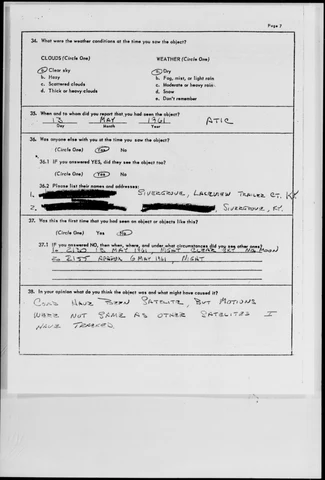 Page 7
34. What were the weather conditions at the time you saw the object?
CLOUDS (Circle One) WEATHER (Circle One)
a. Clear sky a. Dry
b. Hazy b. Fog, mist, or light rain
c. Scattered clouds c. Moderate or heavy rain
d. Thick or heavy clouds d. Snow
e. Don't remember
35. When and to whom did you report that you had seen the object?
13 MAY 1961 ATIC
Day Month Year
36. Was anyone else with you at the time you saw the object?
(Circle One) Yes No
36.1 IF you answered YES, did they see the object too?
(Circle One) Yes No
36.2 Please list their names and addresses:
1. SILVERGROVE, LAKEVIEW TRAILER CT. KY
2. SILVERGROVE, KY.
37. Was this the first time that you had seen an object or objects like this?
(Circle One) Yes No
37.1 IF you answered NO, then when, where, and under what circumstances did you see other ones?
2130 12 MAY 1961 NIGHT CLEAR SKY NO MOON
2157 6 MAY 1961, NIGHT
38. In your opinion what do you think the object was and what might have caused it?
COULD HAVE BEEN SATELITE, BUT MOTIONS
WERE NOT SAME AS OTHER SATELITES I
HAVE TRACKED